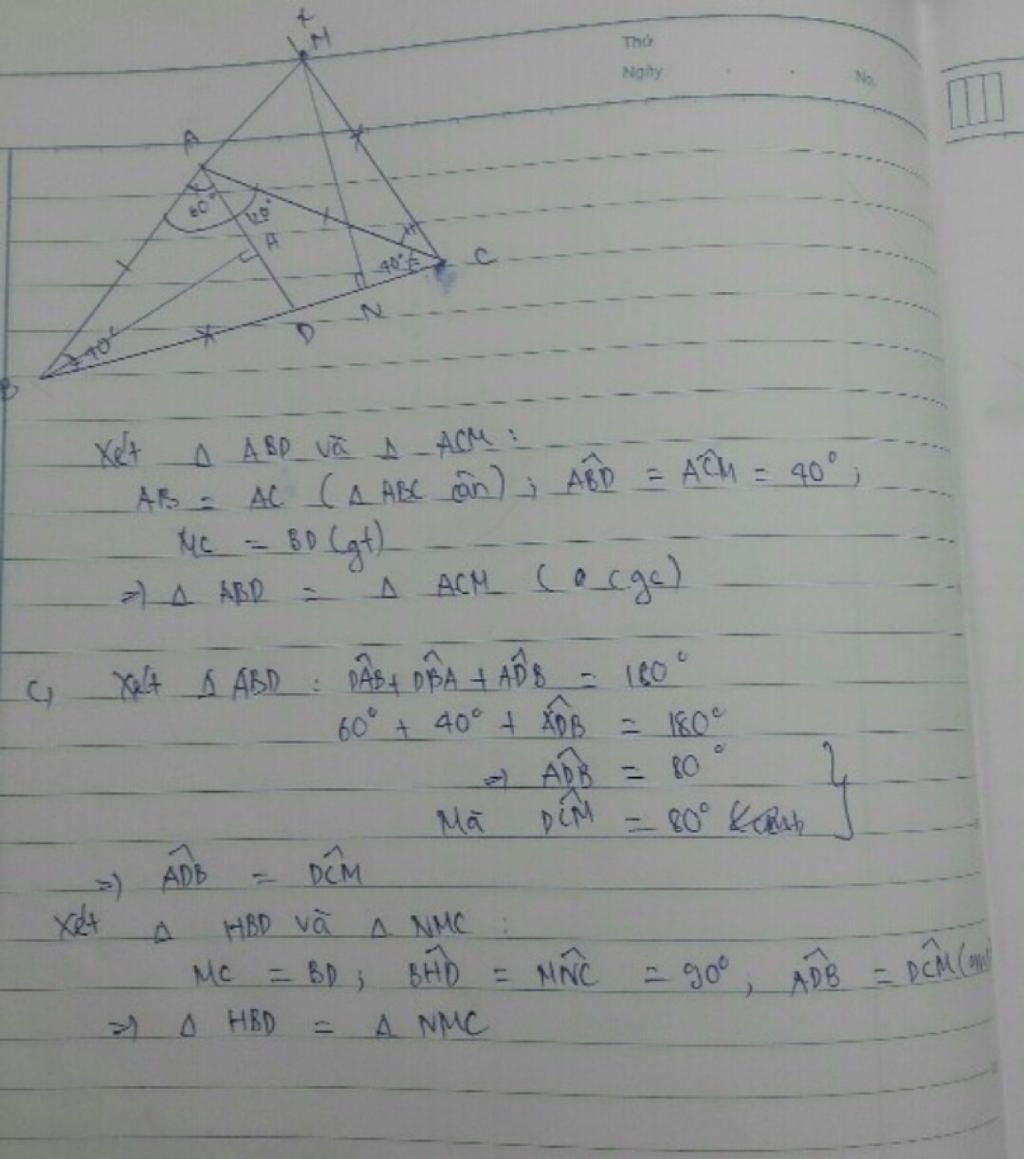 x
M
Thứ
Ngày
No.
A
60°
120°
H
40°
C
D
N
40°
B
Xét Δ ABD và Δ ACM :
AB = AC (Δ ABC cân) ; ABD̂ = ACM̂ = 40° ;
MC = BD (gt)
=) Δ ABD = Δ ACM ( cgc)
C, Xét Δ ABD : DÂB + DB̂A + AD̂B = 180°
60° + 40° + AD̂B = 180°
=) AD̂B = 80°
Mà DĈM = 80°
=) AD̂B = DĈM
Xét Δ HBD và Δ NMC :
MC = BD ; BĤD = MN̂C = 90° ; AD̂B = DĈM
=) Δ HBD = Δ NMC